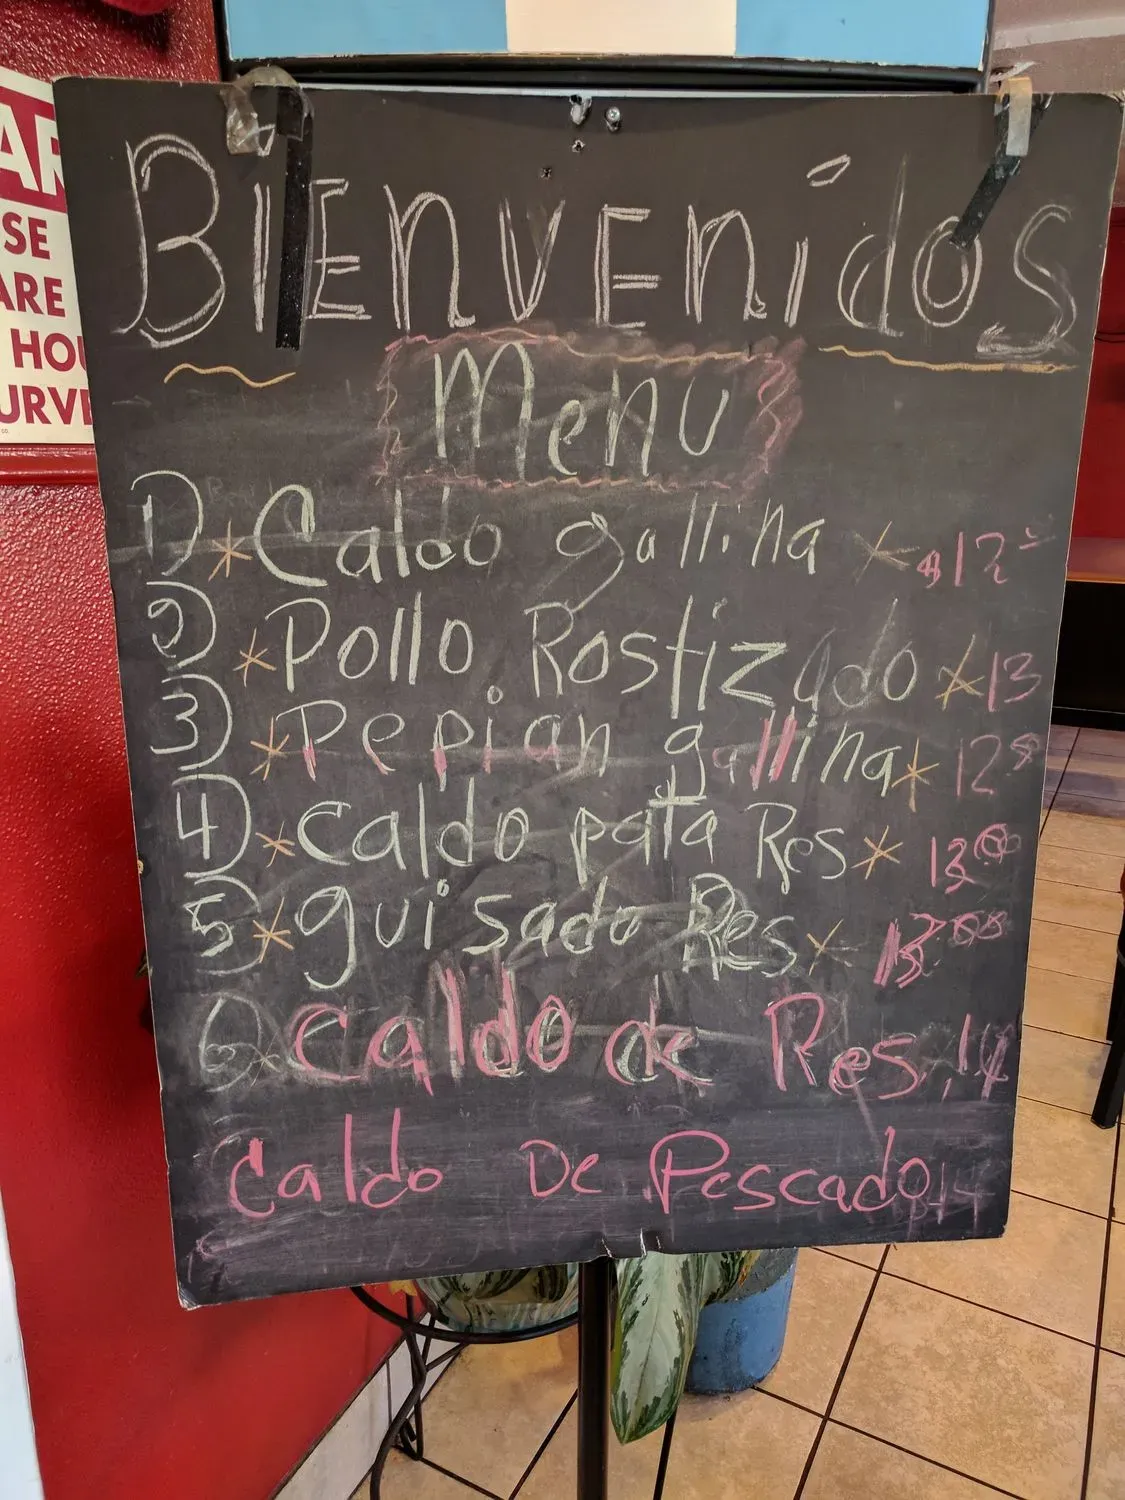 BIENVENIDOS
Menu
1) * Caldo gallina * $12
2) * Pollo Rostizado * 13
3) * Pepian gallina * 12
4) * Caldo pata Res * 13.00
5) * guisado Res * 13.00
6) * Caldo de Res 14
Caldo De Pescado 14
SE
ARE
HOU
URVE